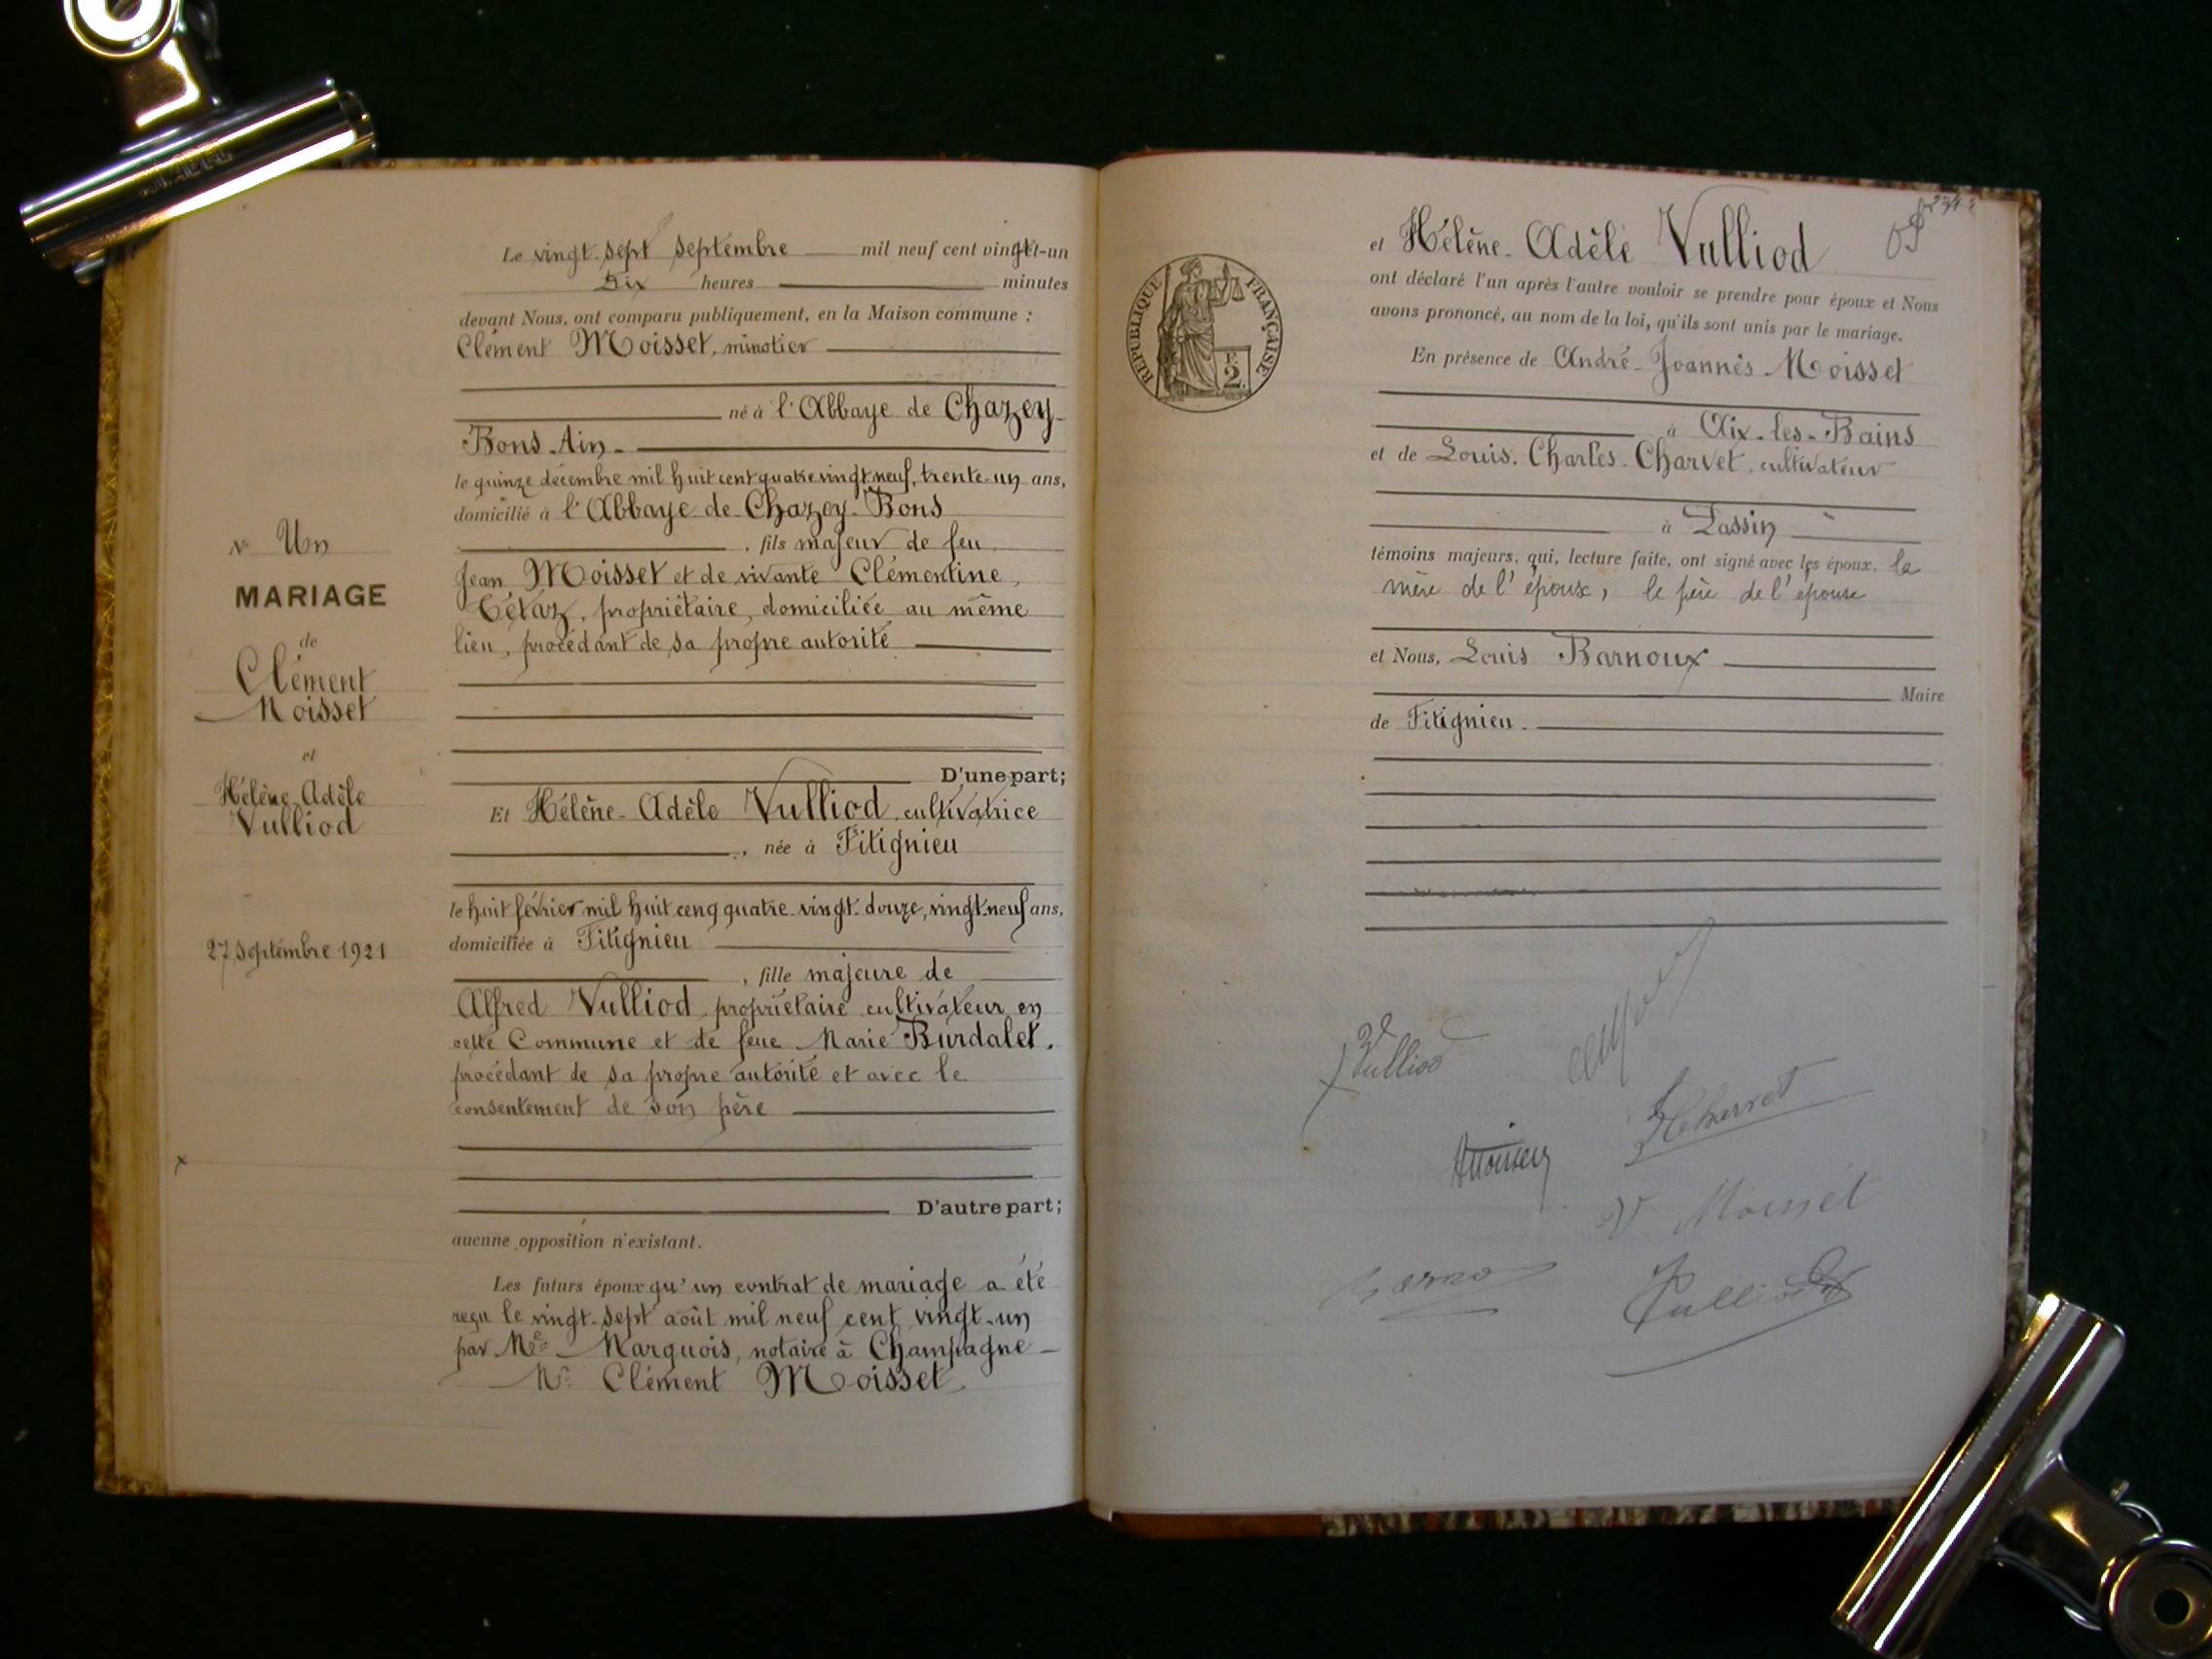 Le vingt-sept septembre mil neuf cent vingt-un
Dix heures minutes
devant Nous, ont comparu publiquement, en la Maison commune :
Clément Moisset, minotier
né à l'Abbaye de Chazey-
Bons-Ain-
le quinze décembre mil huit cent quatre vingt neuf, trente-un ans,
domicilié à l'Abbaye de Chazey-Bons
, fils majeur de feu
Jean Moisset et de vivante Clémentine
propriétaire, domiciliée au même
lieu, procédant de sa propre autorité
D'une part;
Et Hélène-Adèle Vulliod, cultivatrice
, née à Fitignieu
le huit février mil huit cent quatre-vingt-douze, vingt-neuf ans,
domiciliée à Fitignieu
, fille majeure de
Alfred Vulliod, propriétaire cultivateur en
cette Commune et de feue Marie Burdalet.
procédant de sa propre autorité et avec le
consentement de son père
D'autre part;
aucune opposition n'existant.
Les futurs époux qu'un contrat de mariage a été
reçu le vingt-sept août mil neuf cent vingt-un
par Me Marquois, notaire à Champagne-
Mr Clément Moisset
No Un
MARIAGE
de
Clément
Moisset
et
Hélène-Adèle
Vulliod
27 Septembre 1921
RÉPUBLIQUE FRANÇAISE
2
et Hélène-Adèle Vulliod
ont déclaré l'un après l'autre vouloir se prendre pour époux et Nous
avons prononcé, au nom de la loi, qu'ils sont unis par le mariage.
En présence de André-Joannès Moisset
à Aix-les-Bains
et de Louis-Charles-Charvet, cultivateur
à Passin
témoins majeurs, qui, lecture faite, ont signé avec les époux, la
mère de l'époux, le père de l'épouse
et Nous, Louis Barnoux
Maire
de Fitignieu.
Vulliod
Charvet
Moisset
Vulliod